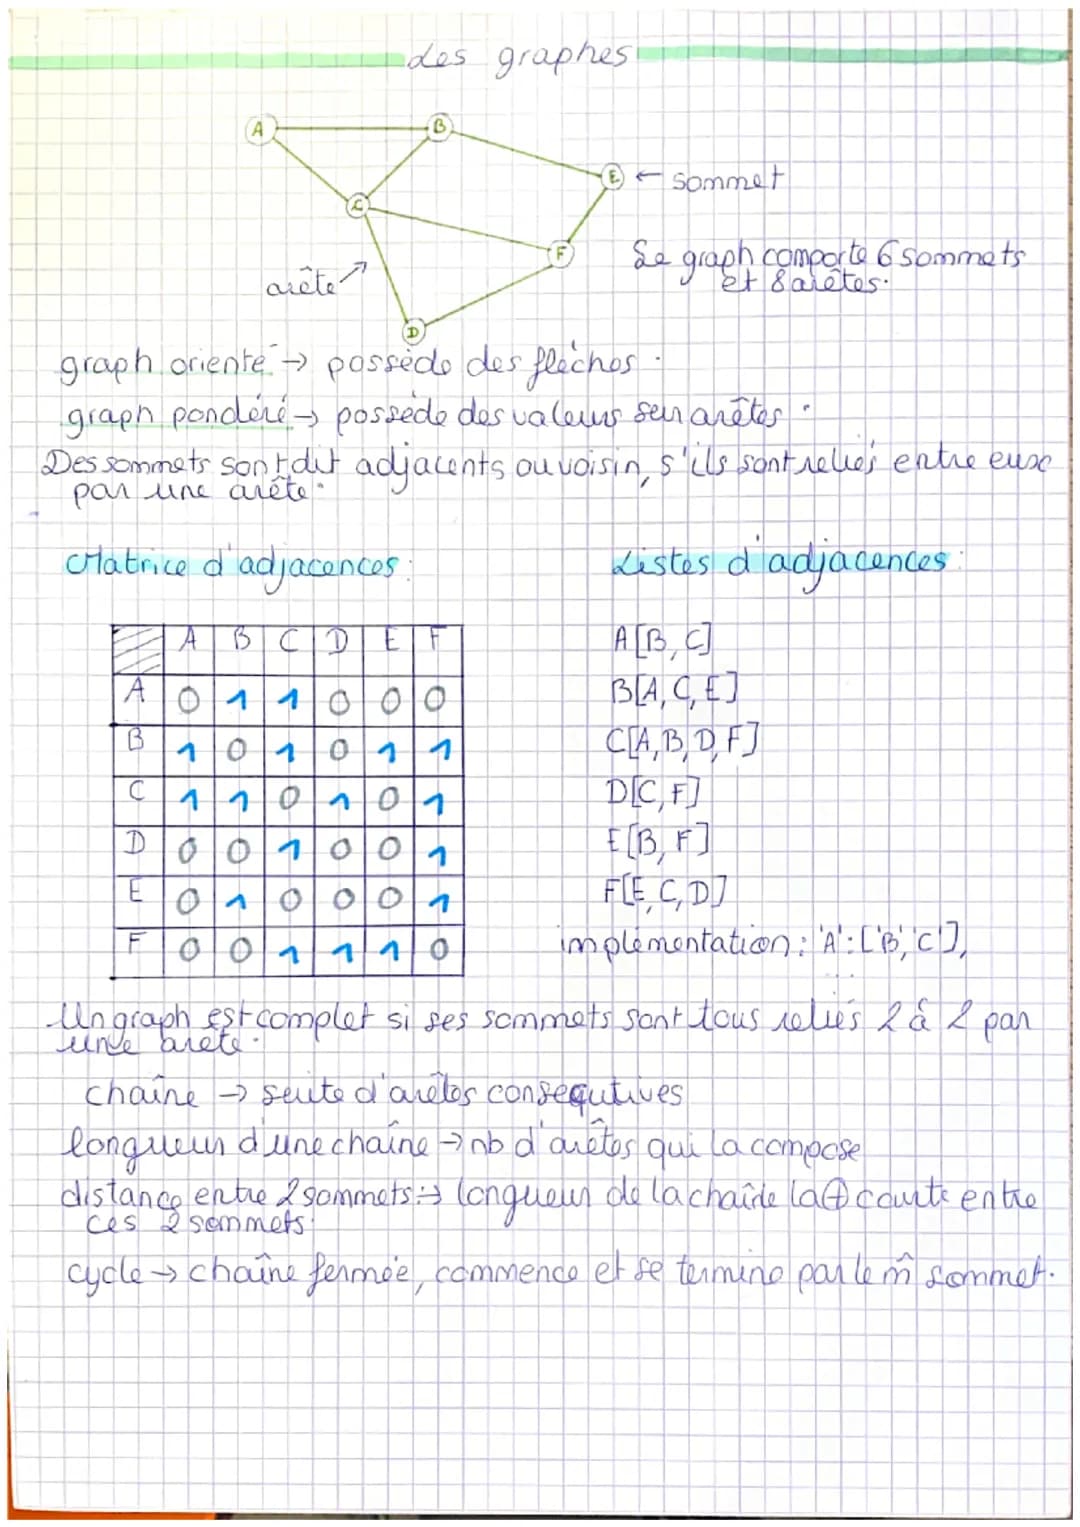 des graphes
A
B
E ← sommet
C
F
Le graph comporte 6 sommets
et 8 arêtes.
arête
D
graph orienté → possède des flèches.
graph pondéré → possède des valeurs sur arêtes.
Des sommets sont dit adjacents ou voisin, s'ils sont reliés entre eux
par une arête.
Matrice d'adjacences:
Listes d'adjacences:
A B C D E F
A 0 1 1 0 0 0
B 1 0 1 0 1 1
C 1 1 0 1 0 1
D 0 0 1 0 0 1
E 0 1 0 0 0 1
F 0 0 1 1 1 0
A[B, C]
B[A, C, E]
C[A, B, D, F]
D[C, F]
E[B, F]
F[E, C, D]
implémentation: 'A': ['B', 'C'],
...
Un graph est complet si ses sommets sont tous reliés 2 à 2 par
une arête.
chaîne → suite d'arêtes consequtives
longueur d'une chaîne → nb d'arêtes qui la compose
distance entre 2 sommets: → longueur de la chaîne la + courte entre
ces 2 sommets.
cycle → chaîne fermée, commence et se termine par le m̂ sommet.